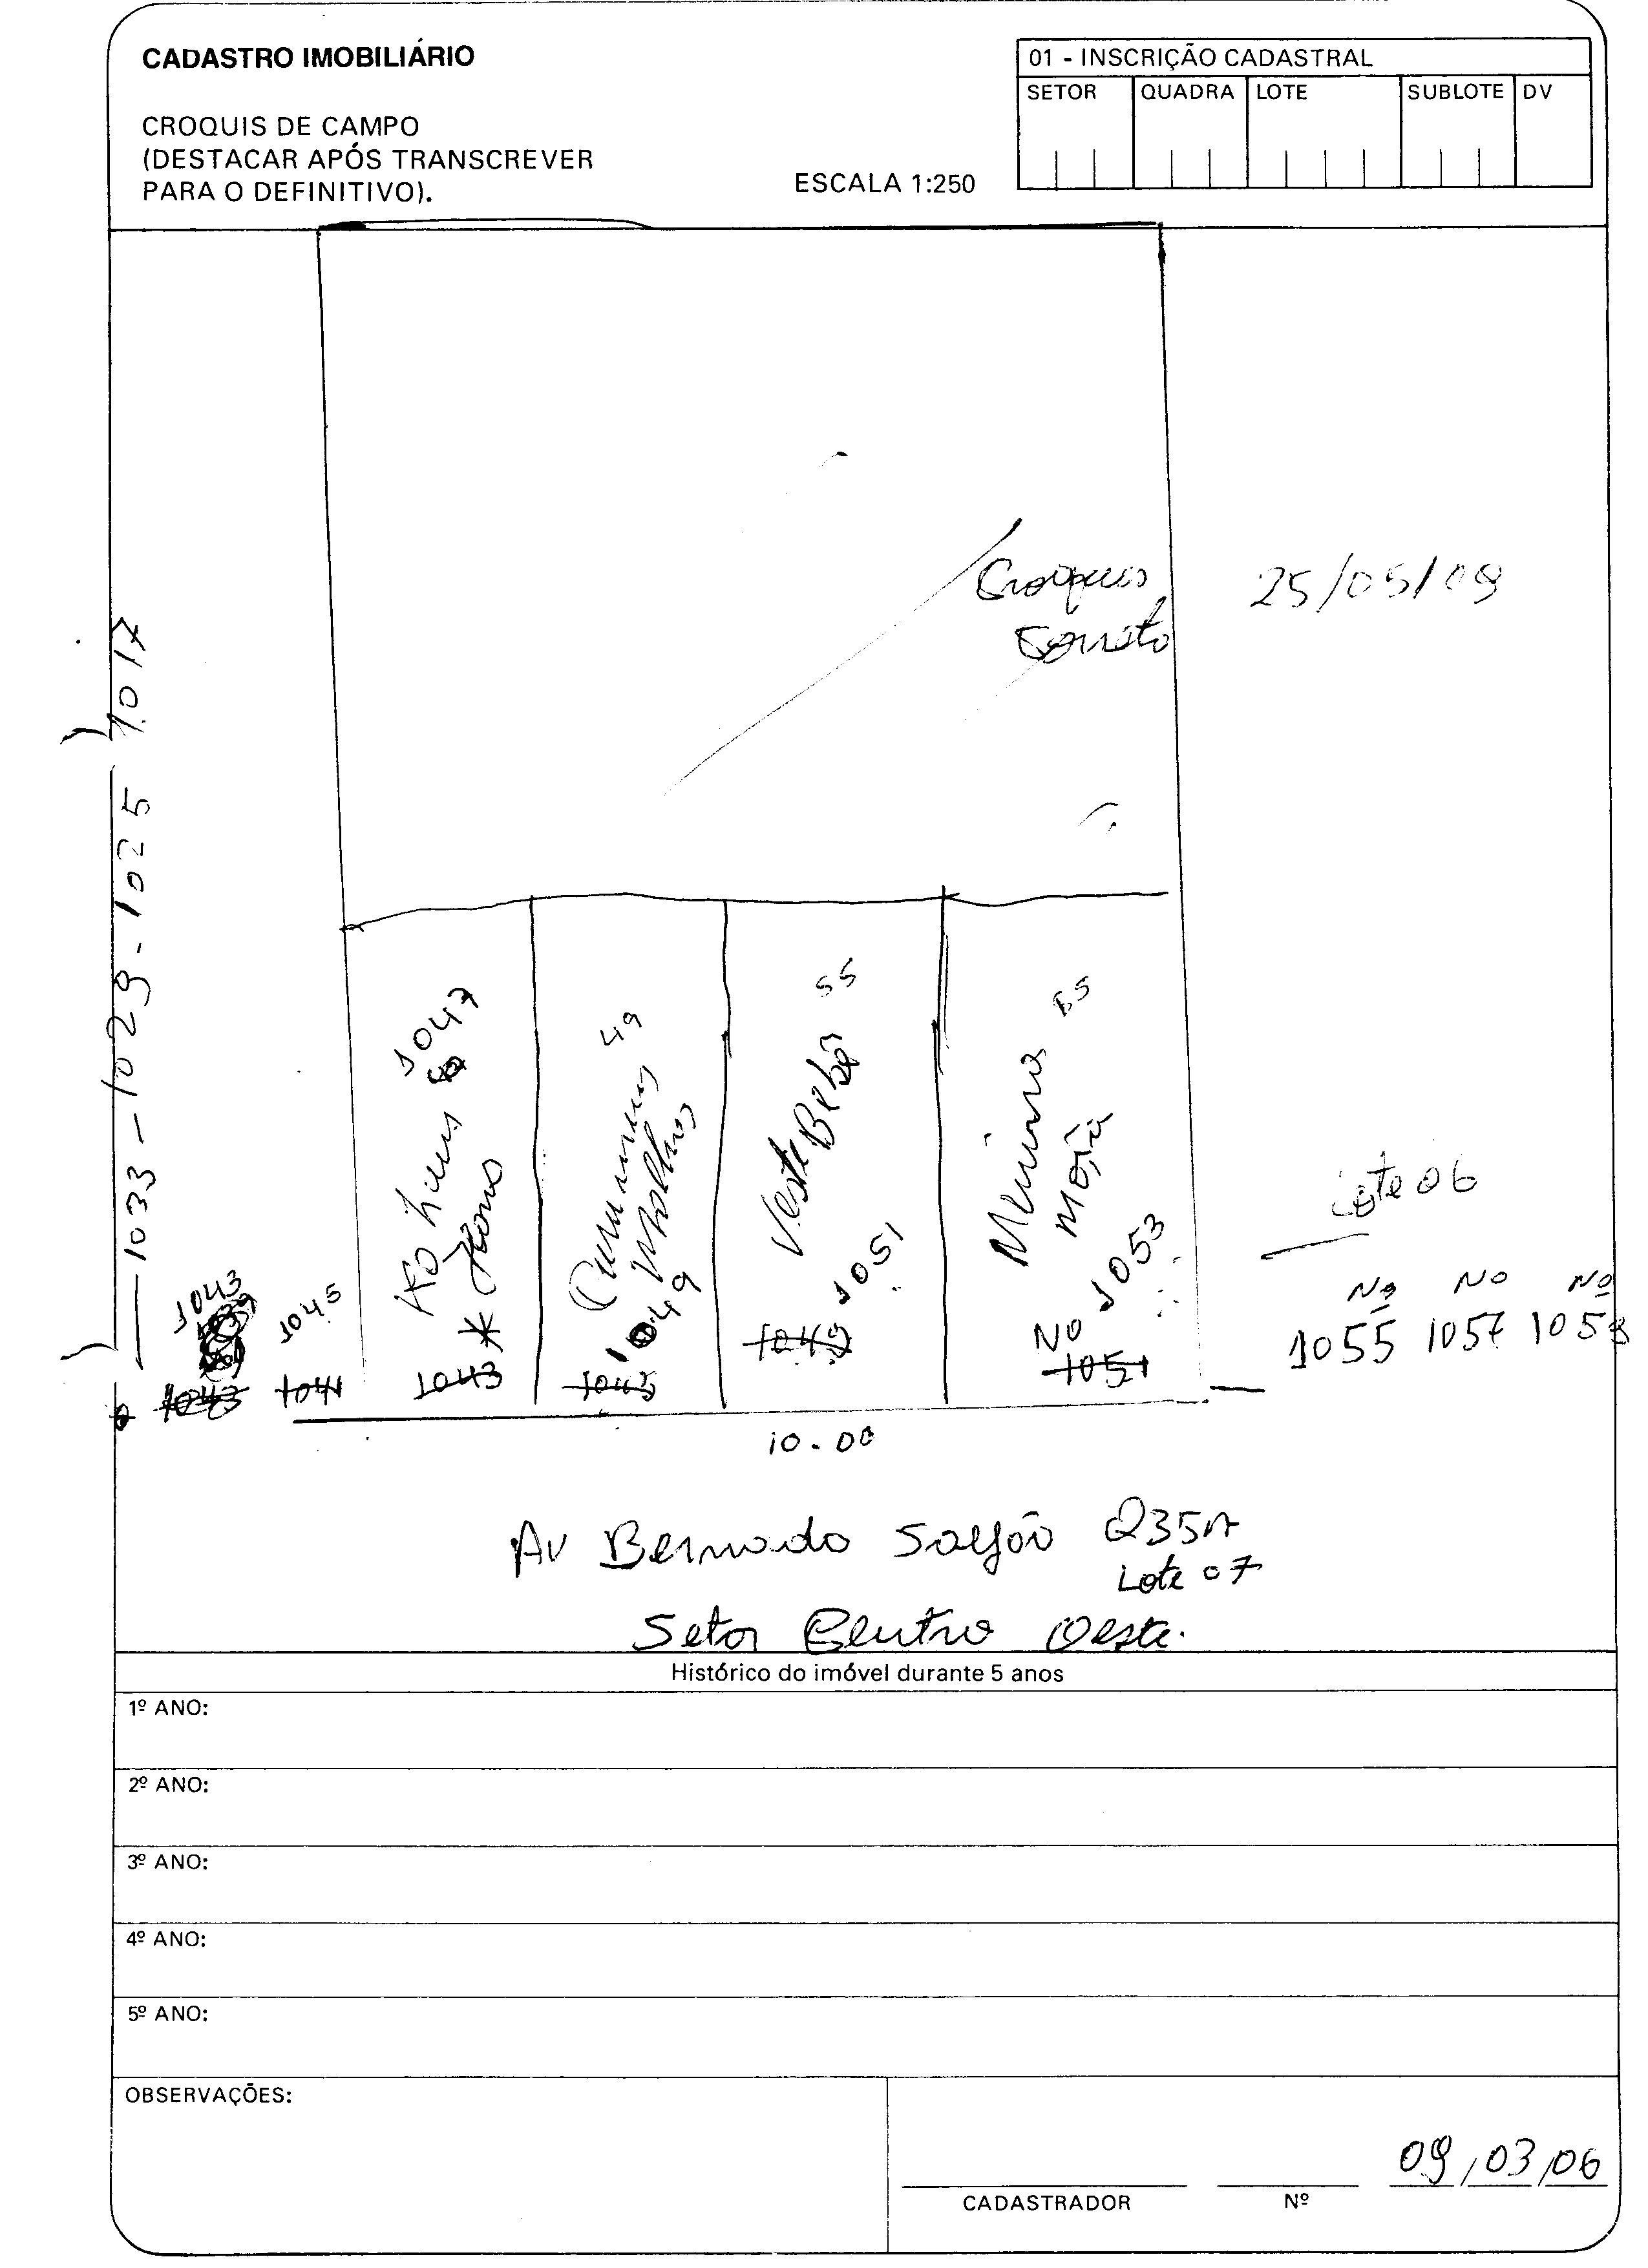 CADASTRO IMOBILIÁRIO
01 - INSCRIÇÃO CADASTRAL
SETOR QUADRA LOTE SUBLOTE DV
CROQUIS DE CAMPO
(DESTACAR APÓS TRANSCREVER
PARA O DEFINITIVO).
ESCALA 1:250
Croquis
Correto
25/05/09
1033 - 1029 - 1025 1017
1047
49
55
55
Veste Bebê
Menina
Moça
Home
1049
1051
Nº 1053
Lote 06
Nº Nº Nº
1055 1057 1059
1043
1045
1043 1041 1043 1045 1049 1051
10.00
Av Bernardo Sayão Q35A
Lote 07
Setor Centro Oeste.
Histórico do imóvel durante 5 anos
1º ANO:
2º ANO:
3º ANO:
4º ANO:
5º ANO:
OBSERVAÇÕES:
09/03/06
CADASTRADOR Nº